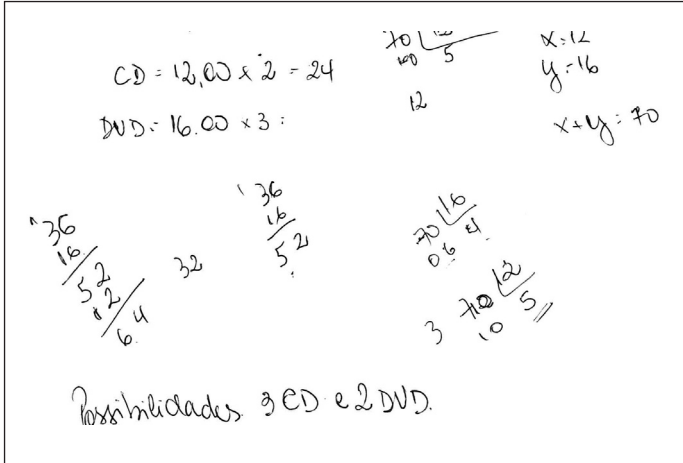 CD = 12,00 x 2 = 24
DVD = 16.00 x 3 =
70
100 5
12
x = 12
y = 16
x + y = 70
36
16
52
12
64
32
36
16
52
70 16
06 4
3 70 12
10 5
Possibilidades 3 CD e 2 DVD.